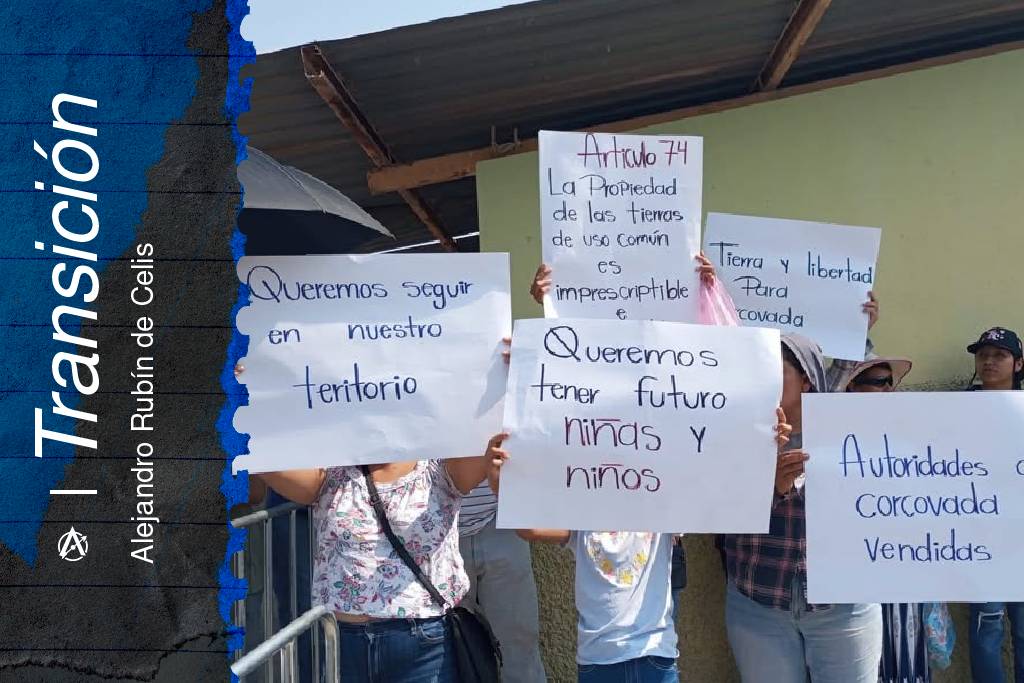 Transición
Alejandro Rubín de Celis
Queremos seguir
en nuestro
teritorio
Articulo 74
La Propiedad
de las tierras
de uso común
es
imprescriptible
e
Tierra y libertad
Para
covada
Queremos
tener futuro
niñas y
niños
Autoridades
corcovada
vendidas